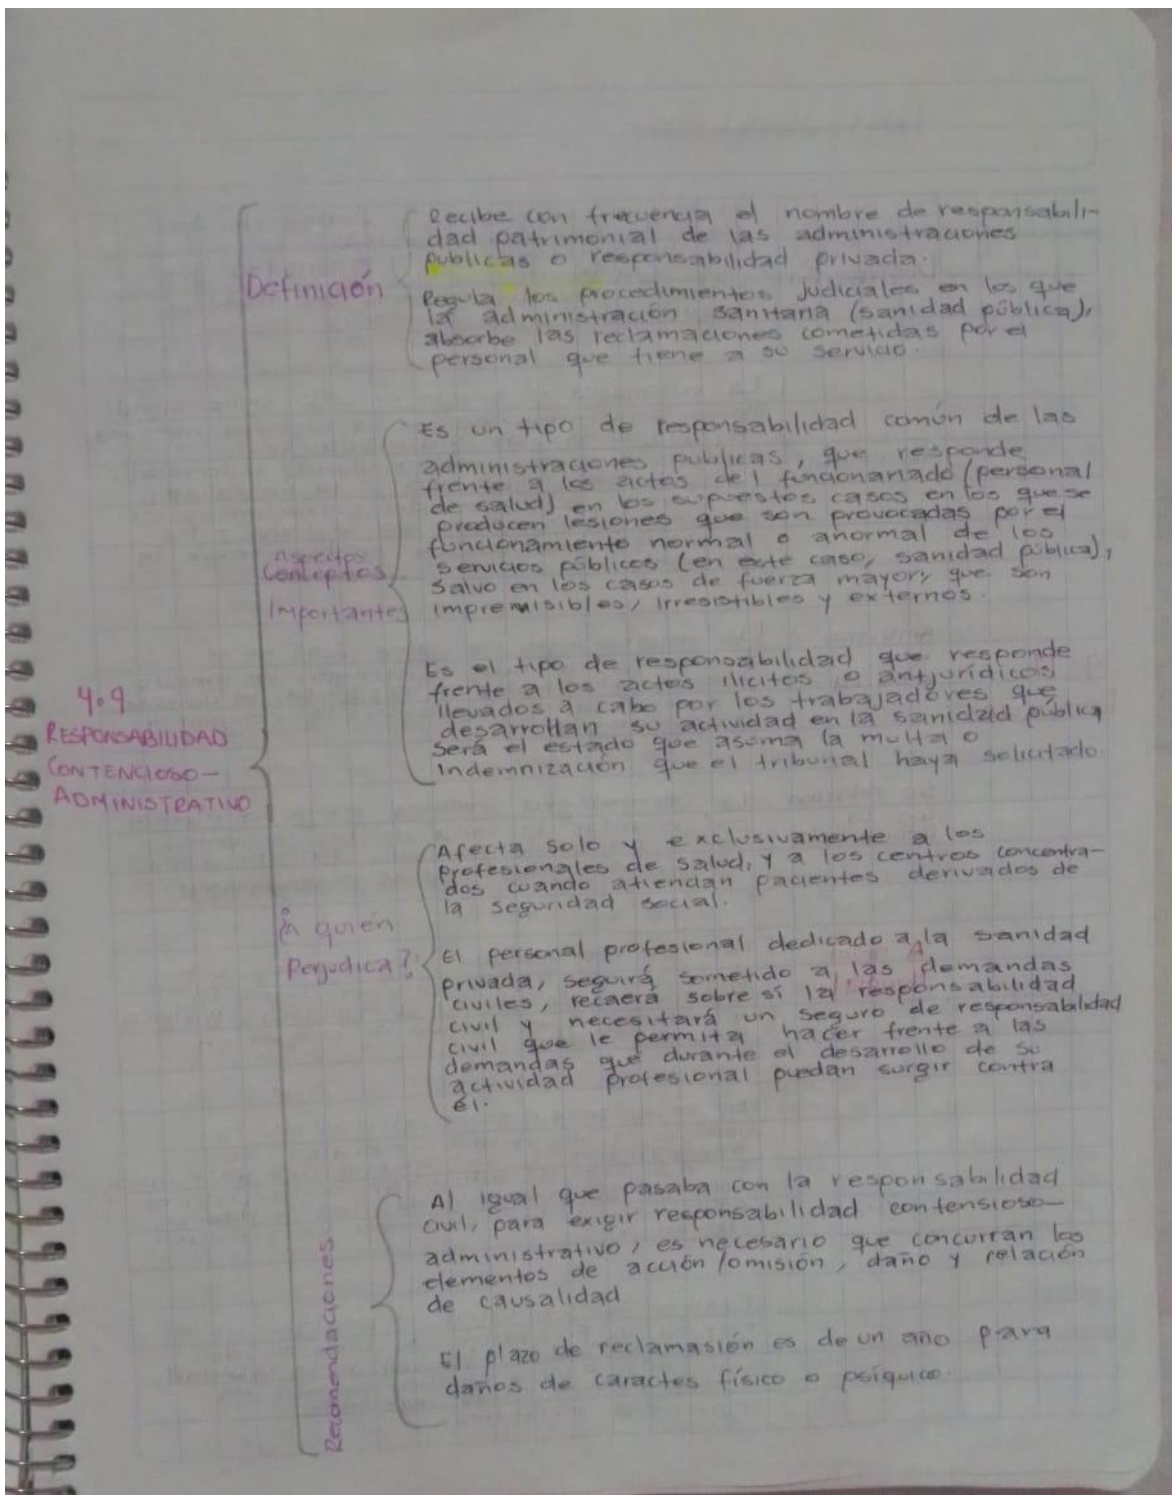 4.9
RESPONSABILIDAD
CONTENCIOSO-
ADMINISTRATIVO
Definición
Recibe con frecuencia el nombre de responsabili-
dad patrimonial de las administraciones
publicas o responsabilidad privada.
Regula los procedimientos judiciales en los que
la administración sanitaria (sanidad pública),
absorbe las reclamaciones cometidas por el
personal que tiene a su servicio.
Aspectos
Conceptos
Importantes
Es un tipo de responsabilidad común de las
administraciones publicas, que responde
frente a los actos del funcionariado (personal
de salud) en los supuestos casos en los que se
producen lesiones que son provocadas por el
funcionamiento normal o anormal de los
servicios públicos (en este caso, sanidad pública),
salvo en los casos de fuerza mayor, que son
impremisibles, irresistibles y externos.
Es el tipo de responsabilidad que responde
frente a los actos ilícitos o antjurídicos
llevados a cabo por los trabajadores que
desarrollan su actividad en la sanidad pública
será el estado que asuma la multa o
indemnización que el tribunal haya solicitado.
¿A quién
Perjudica?
Afecta solo y exclusivamente a los
profesionales de salud, y a los centros concentra-
dos cuando atiendan pacientes derivados de
la seguridad social.
El personal profesional dedicado a la sanidad
privada, seguirá sometido a las demandas
civiles, recaerá sobre sí la responsabilidad
civil y necesitará un seguro de responsabilidad
civil que le permita hacer frente a las
demandas que durante el desarrollo de su
actividad profesional puedan surgir contra
él.
Recomendaciones
Al igual que pasaba con la responsabilidad
civil, para exigir responsabilidad contensioso-
administrativo, es necesario que concurran los
elementos de acción/omisión, daño y relación
de causalidad
El plazo de reclamasión es de un año para
daños de caractes físico o psíquico.